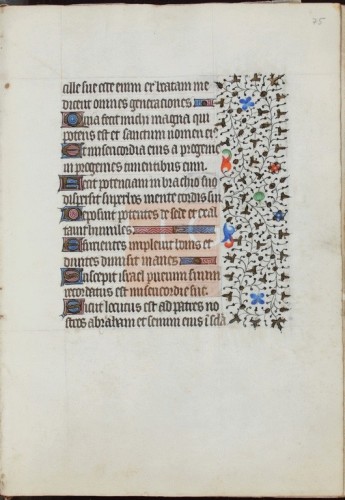 75
cille sue ecce enim ex hac beatam me
dicent omnes generaciones
Quia fecit michi magna qui
potens est et sanctum nomen eius
Et misericordia eius a progenie
in progenies timentibus eum.
Fecit potenciam in brachio suo
dispersit superbos mente cordis sui
Deposuit potentes de sede et exal
tavit humiles.
Esurientes implevit bonis et
divites dimisit inanes
Suscepit israel puerum suum
recordatus est misericordie sue.
Sicut locutus est ad patres no
stros abraham et semini eius i secla